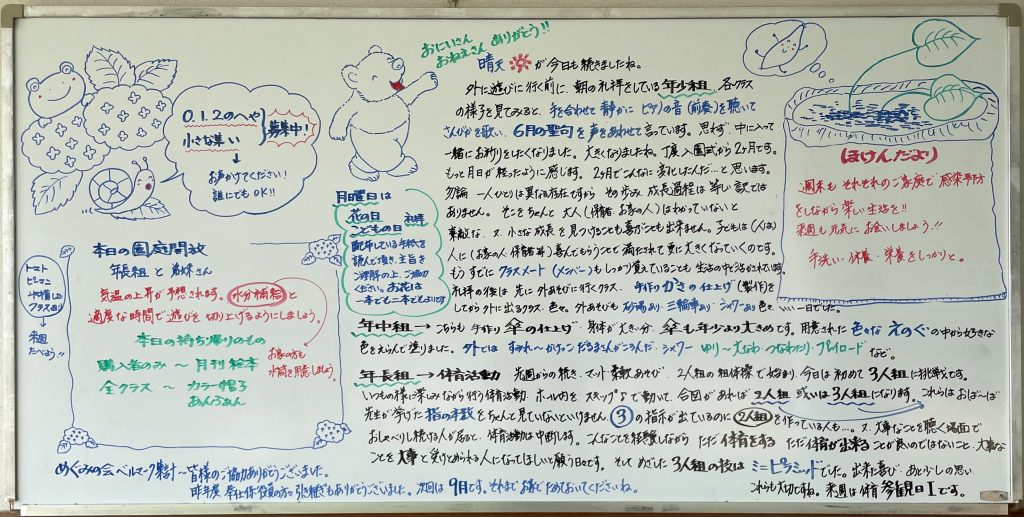 おにいさん
おねえさん ありがとう!!
0.1.2のへや
小さな集い
募集中!
↓
お声かけてください!
誰にでもOK!!
晴天 が今日も続きましたね。
外に遊びに行く前に、朝の礼拝をしている年少組 各クラス
の様子を見てみると、手を合わせて静かに ピアノの音(前奏)を聴いて
さんびかを歌い、6月の聖句を声をあわせて言っています。思わず、中に入って
一緒にお祈りをしたくなりました。大きくなりましたね。丁度入園式から2ヶ月です。
もっと月日が経ったように感じます。2ヶ月でこんなに変化したんだ…と思います。
勿論 一人ひとりは異なる存在ですから その歩み、成長過程は等しい訳では
ありません。そこをちゃんと 大人(保育者、お家の人)はわかっていないと
素敵な、又、小さな成長を見つけることも喜ぶことも出来ません。子どもは(人は)
人に(お家の人、保育者等)喜んでもらうことで満たされて更に大きくなっていくのです。
もうすでにクラスメート(メンバー)もしっかり覚えていることも生活の中で活かされています。
礼拝の後は 先に外あそびに行くクラス、手作りかさの仕上げ(製作)を
してから外に出るクラス 色々。外あそびも 砂場あり 三輪車あり シャワーあり 色々、…一日でした。
月曜日は
花の日
こどもの日 礼拝
配布している手紙を
読んで頂き、主旨を
ご理解の上、ご協力
ください。お花は
一本でも二本でもよいです
ほけんだより
週末も それぞれのご家庭で 感染予防
をしながら 楽しい生活を!!
来週も元気にお会いしましょう!!
手洗い・休養・栄養をしっかりと。
本日の園庭開放
年長組と弟妹さん
気温の上昇が予想されます。水分補給と
適度な時間で遊びを切り上げるようにしましょう。
お家の方も
水筒を用意しましょう。
本日の持ち帰りのもの
購入者のみ〜月刊絵本
全クラス〜カラー帽子
トマト
ピーマン
クラスあり
↓
来週
たべよう!!
年中組→こちらも 手作り 傘の仕上げ 身体が大きい分、傘も年少より大きめです。用意された色々なえのぐの中から好きな
色をえらんで塗りました。外では すみれ〜かけっこ だるまさんがころんだ・シャワー ゆり〜大なわ・つなわたり・プレイロード など。
年長組→体育活動 先週からの続き、マット 柔軟あそび、2人の組体操で始まり、今日は初めて 3人組に挑戦です。
いつもの様に楽しみながら行う体育活動、ホール内をスキップ♪で動いて、合図があれば 2人組 或いは 3人組になります。これらはおば〜ば
先生が挙げた指の本数をちゃんと見ていないといけません。③の指示が出ているのに 2人組を作っている人も…。又、大事なことを聴く場面で
おしゃべりし続ける人が居ると、体育活動は中断します。こんなことを経験しながら ただ体育をする ただ体育が出来ることが良いのではないこと、大事な
ことを大事と受けとめられる人になってほしいと願う日々です。そして めざした 3人組の技は ミニピラミッドでした。出来た喜び、あと少しの思い
これらも大切ですね。来週は体育 参観日Iです。
めぐみの会 ベルマーク集計〜皆様のご協力ありがとうございました。
昨年度 奉仕係、役員の方々 引き継ぎもありがとうございました。次回は 9月です。それまでお家でためておいてくださいね。